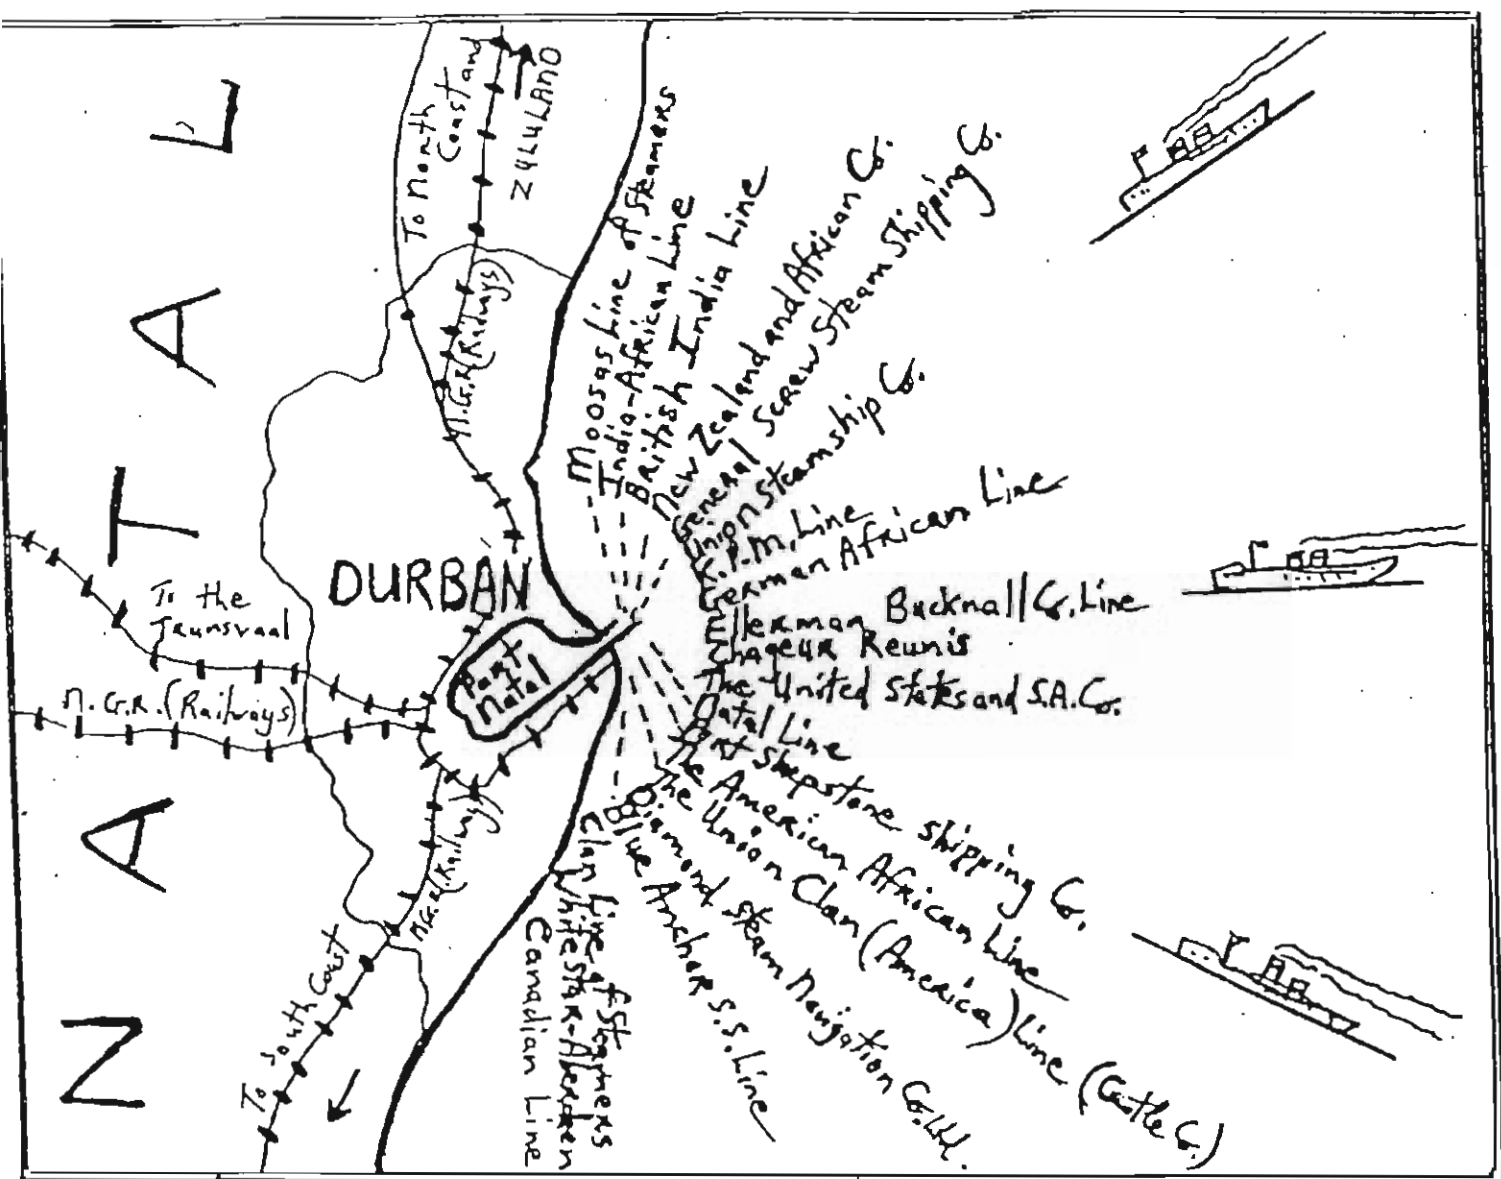 NATAL
To North
Coast and
ZULULAND
N.G.R. (Railways)
DURBAN
Port
Natal
To the
Transvaal
N.G.R. (Railways)
N.G.R. (Railways)
To South Coast
Moosas Line of Steamers
India-African Line
British India Line
New Zealand and African Co.
General Screw Steam Shipping Co.
Union Steamship Co.
K.P.M. Line
German African Line
Ellerman Bucknall Co. Line
Chageur Reunis
The United States and S.A. Co.
Natal Line
Port Shepstone Shipping Co.
The American African Line
The Union Clan (America) Line (Castle Co.)
Diamond Steam Navigation Co. Ltd.
Blue Anchor S.S. Line
Clan Line of Steamers
White Star-Aberdeen
Canadian Line